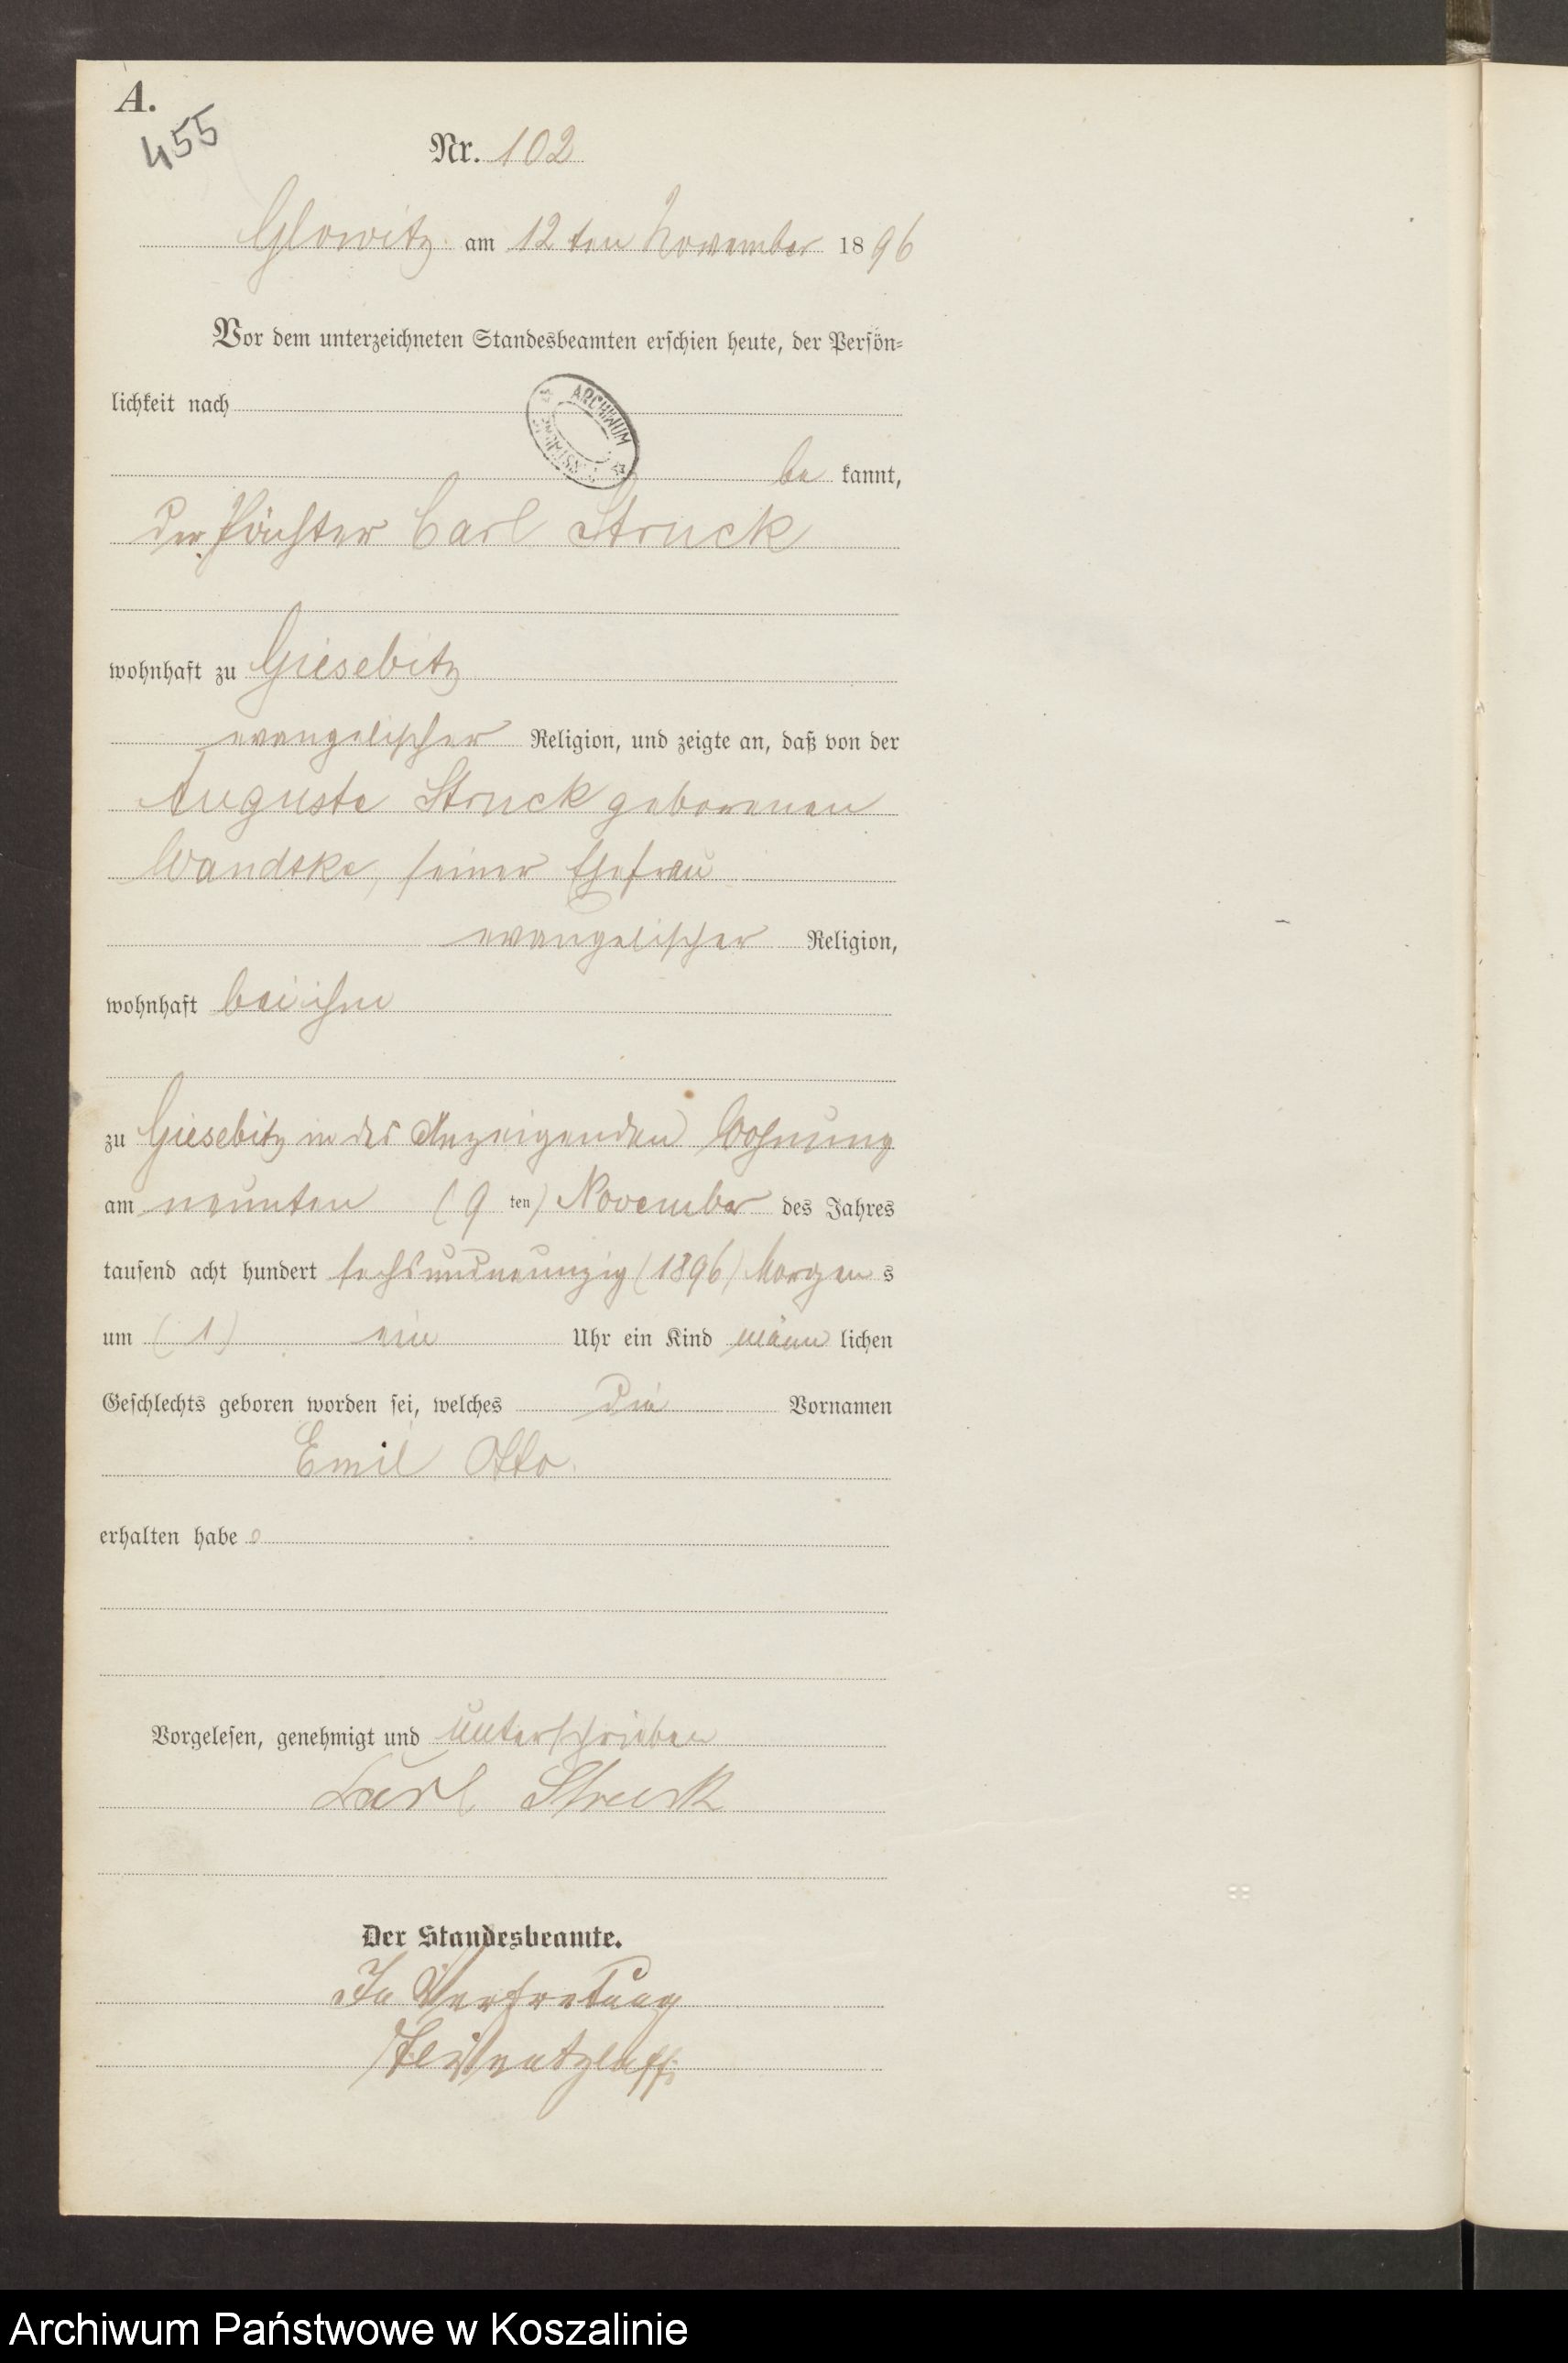 A.
455
Nr. 102
Glowitz am 12ten November 1896
Vor dem unterzeichneten Standesbeamten erschien heute, der Persön-
lichkeit nach
ARCHIWUM
be kannt,
der Pächter Carl Struck
wohnhaft zu Giesebitz
evangelischer Religion, und zeigte an, daß von der
Auguste Struck geborenen
Wandtke, seiner Ehefrau
evangelischer Religion,
wohnhaft bei ihm
zu Giesebitz in des Anzeigenden Wohnung
am neunten (9 ten) November des Jahres
tausend acht hundert sechsundneunzig (1896) Morgen s
um (1) ein Uhr ein Kind männ lichen
Geschlechts geboren worden sei, welches die Vornamen
Emil Otto.
erhalten habe
Vorgelesen, genehmigt und unterschrieben
Carl Struck
Der Standesbeamte.
In Vertretung
Archiwum Państwowe w Koszalinie